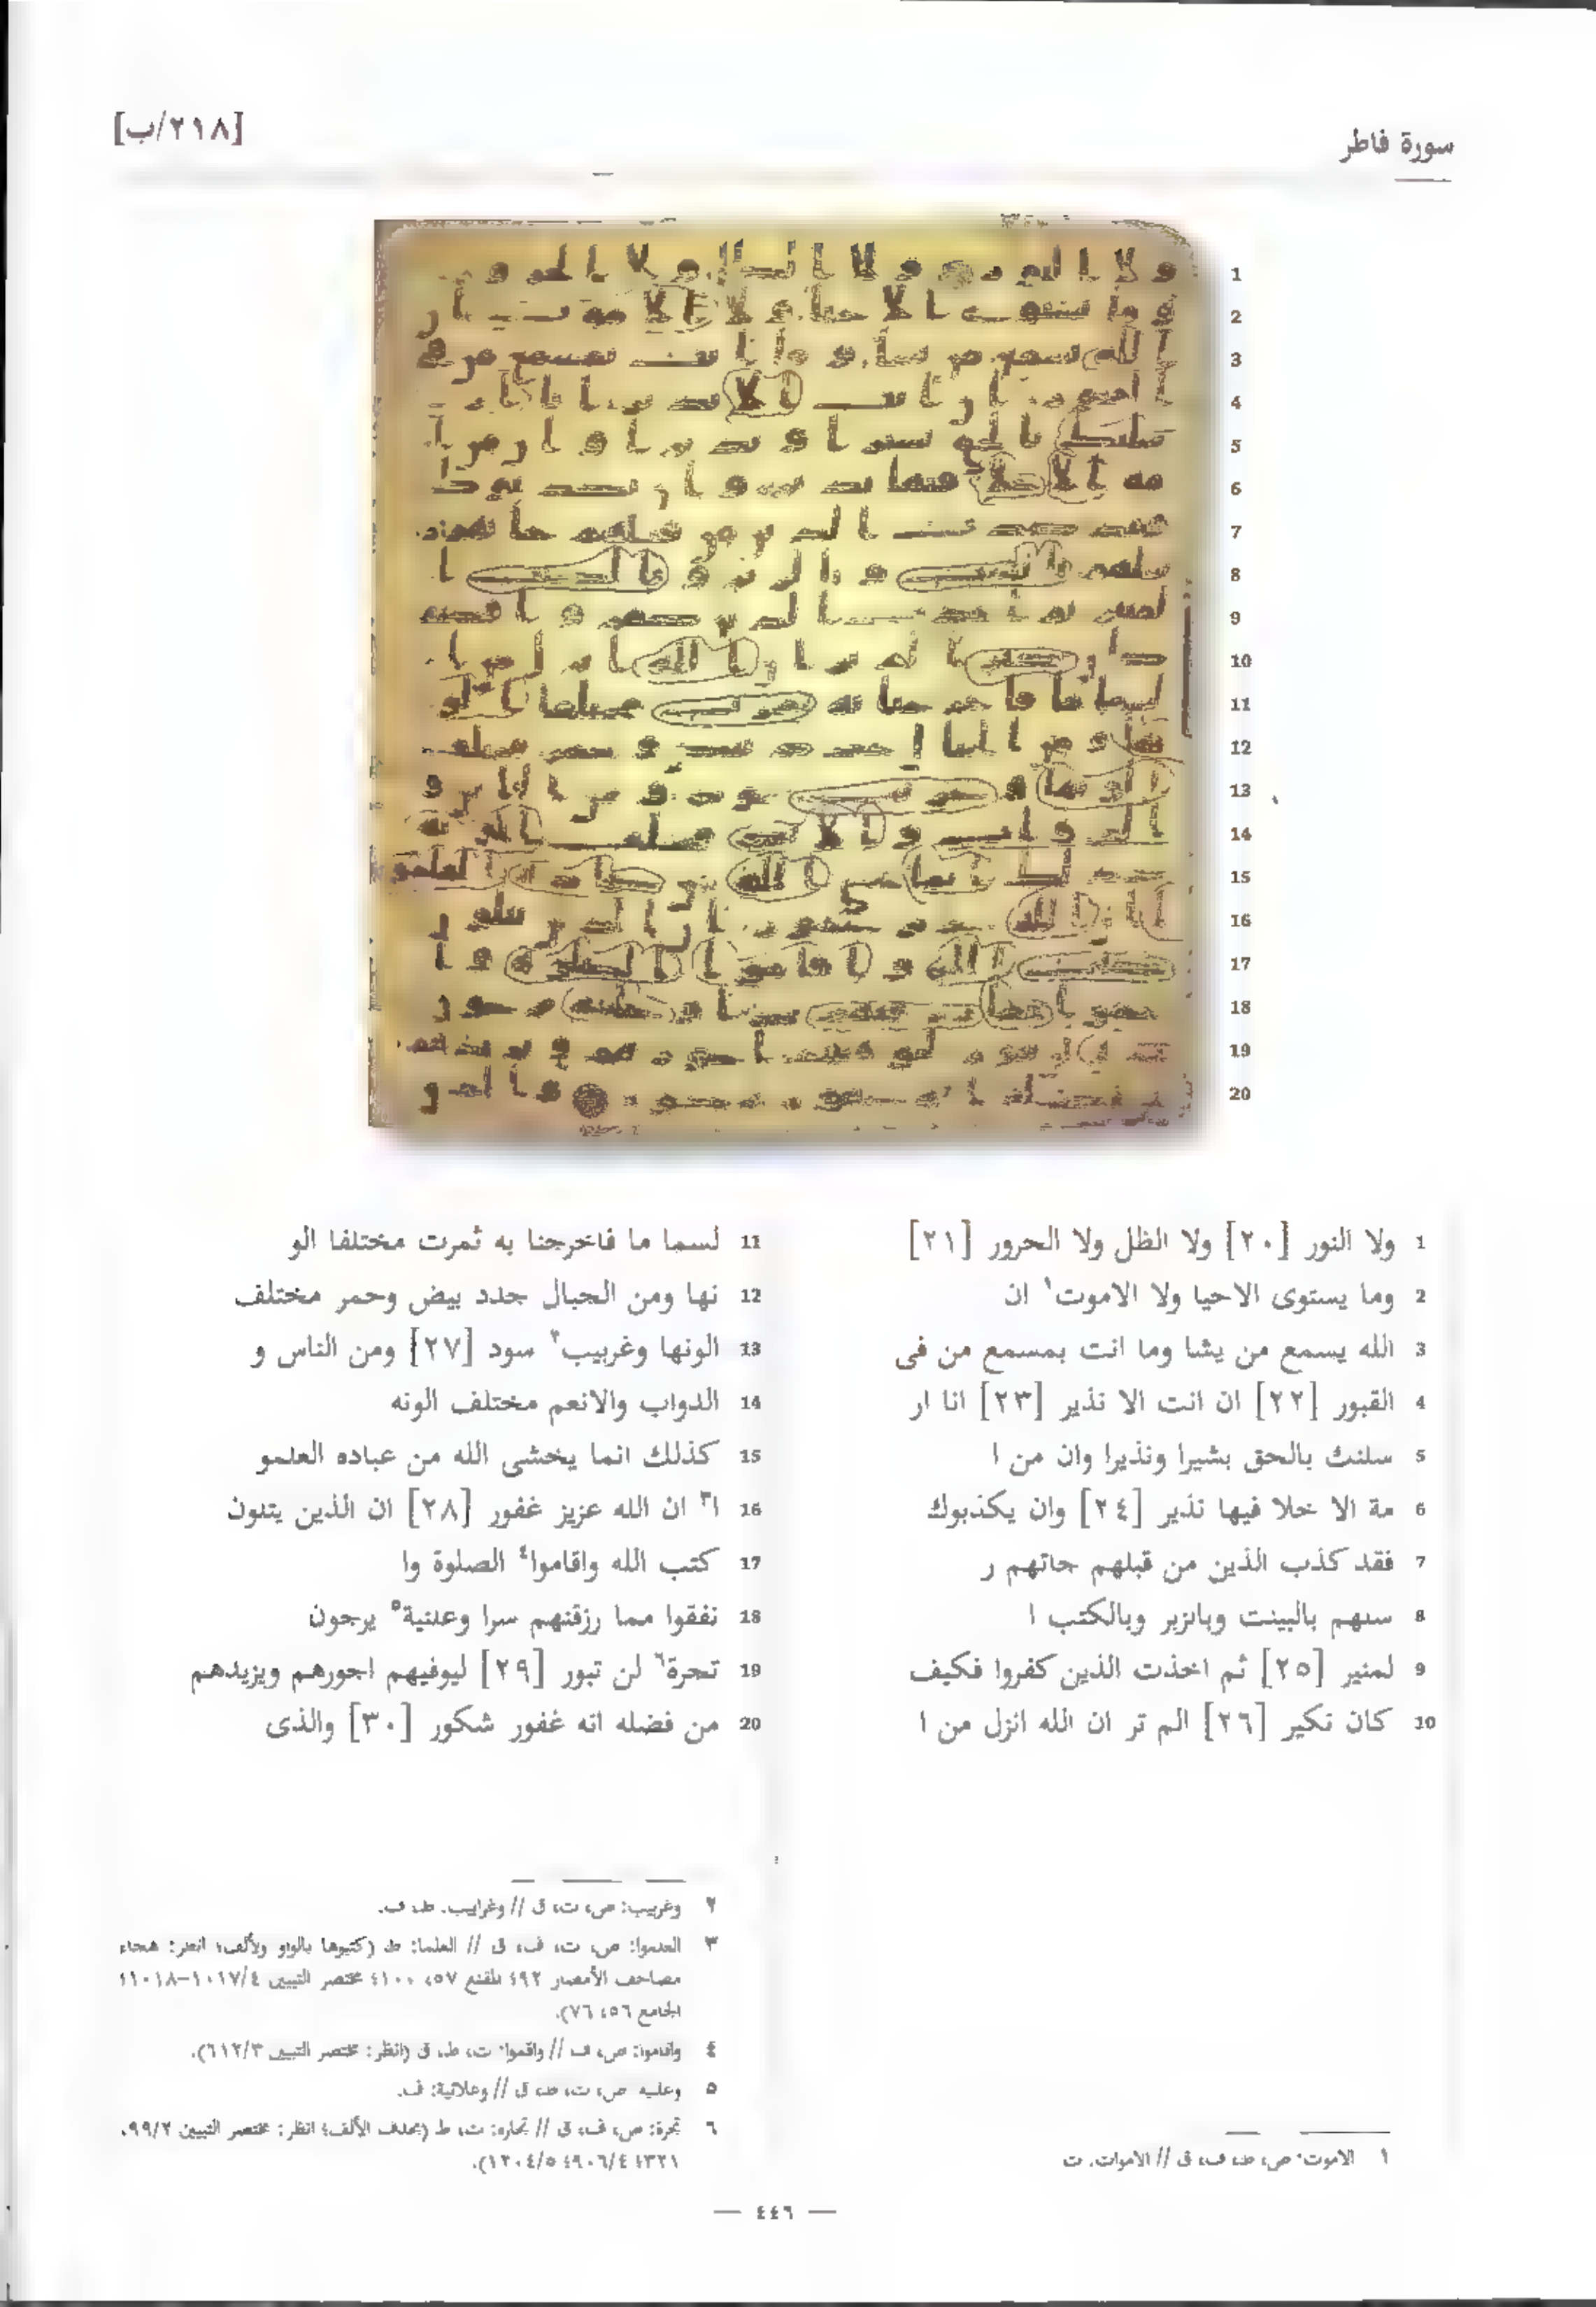 [٢١٨/ب]
سورة فاطر
1 ولا النور [٢٠] ولا الظل ولا الحرور [٢١]
2 وما يستوى الاحيا ولا الاموت١ ان
3 الله يسمع من يشا وما انت بمسمع من فى
4 القبور [٢٢] ان انت الا نذير [٢٣] انا ار
5 سلنك بالحق بشيرا ونذيرا وان من ا
6 مة الا خلا فيها نذير [٢٤] وان يكذبوك
7 فقد كذب الذين من قبلهم جاتهم ر
8 سلهم بالبينت وبالزبر وبالكتب ا
9 لمنير [٢٥] ثم اخذت الذين كفروا فكيف
10 كان نكير [٢٦] الم تر ان الله انزل من ا
11 لسما ما فاخرجنا به ثمرت مختلفا الو
12 نها ومن الجبال جدد بيض وحمر مختلف
13 الونها وغربيب٢ سود [٢٧] ومن الناس و
14 الدواب والانعم مختلف الونه
15 كذلك انما يخشى الله من عباده العلمو
16 ا٣ ان الله عزيز غفور [٢٨] ان الذين يتلون
17 كتب الله واقاموا٤ الصلوة وا
18 نفقوا مما رزقنهم سرا وعلنية٥ يرجون
19 تجرة٦ لن تبور [٢٩] ليوفيهم اجورهم ويزيدهم
20 من فضله انه غفور شكور [٣٠] والذى
١ الاموت: ص، ط، ف، ق // الاموات. ت
٢ وغربيب: ص، ت، ق // وغرابيب. ط، ف.
٣ العلموا: ص، ت، ف، ق // العلما: ط (كتبوها بالواو والألف؛ انظر: هجاء
مصاحف الأمصار ٤٩٢ المقنع ٥٧، ٤١٠٠ مختصر التبيين ١٠١٧/٤-١٠١٨؛
الجامع ٥٦، ٧٦).
٤ واقاموا: ص، ف // واقموا: ت، ط، ق (انظر: مختصر التبيين ٦١٢/٣).
٥ وعلنية: ص، ت، ط، ق // وعلانية: ف.
٦ تجرة: ص، ف، ق // تجاره: ت، ط (بحذف الألف؛ انظر: مختصر التبيين ٩٩/٢،
٩٠٦/٤ ١٢٠٤/٥).
— ٤٤٦ —